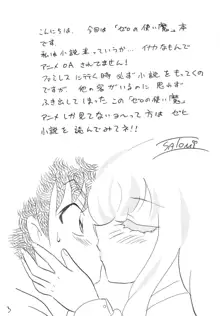 こんにちは、今回は「ゼロの使い魔」本
です。
私は小説派っていうか… イナカなもんで
アニメOAされてません!
ファミレスに行く時必ず小説をもってくの
ですが、他の客がいるのに思わず
ふき出してしまった この「ゼロの使い魔」
アニメしか見てないヨ〜って方は ゼヒ
小説を読んでみてネ!!
SATOMI
3